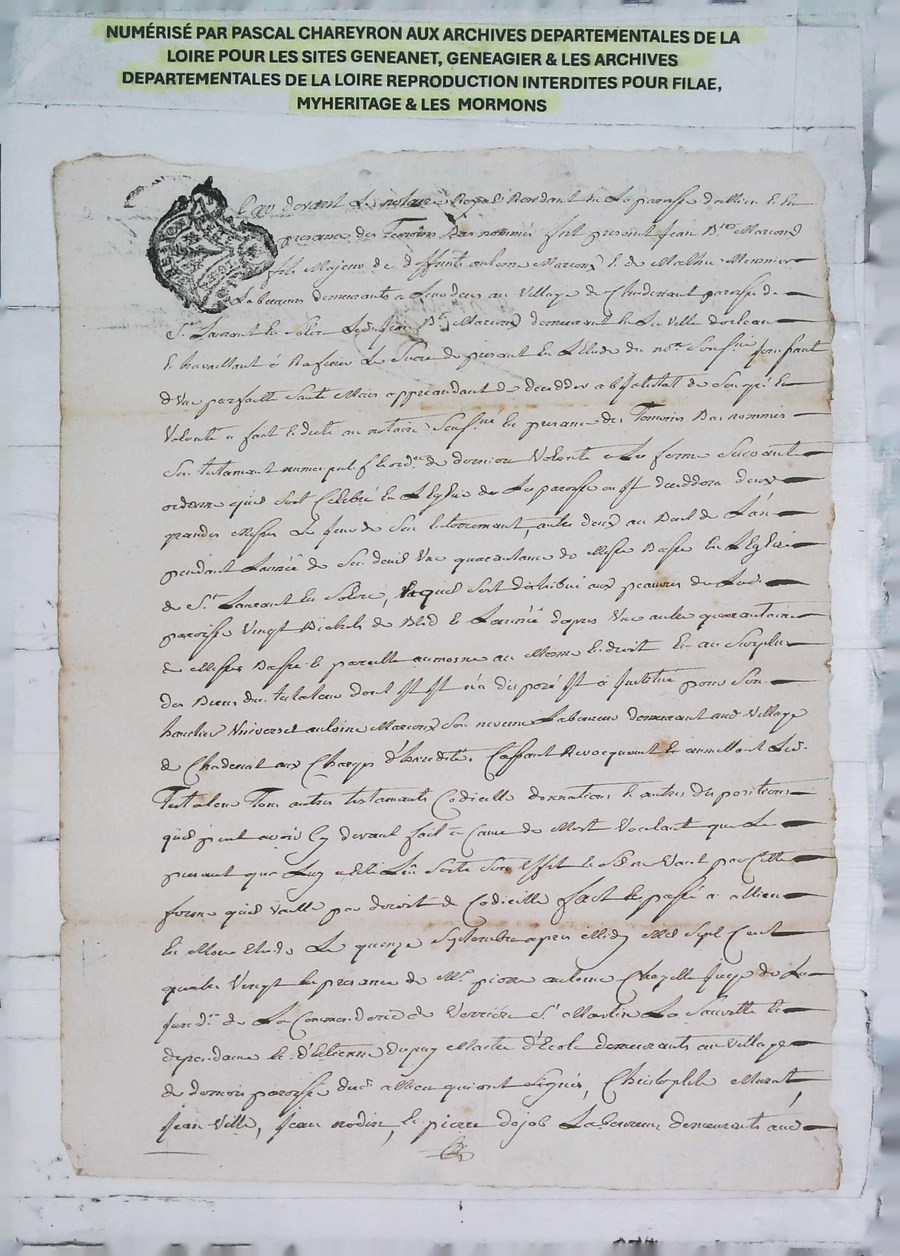 NUMÉRISÉ PAR PASCAL CHAREYRON AUX ARCHIVES DEPARTEMENTALES DE LA
LOIRE POUR LES SITES GENEANET, GENEAGIER & LES ARCHIVES
DEPARTEMENTALES DE LA LOIRE REPRODUCTION INTERDITES POUR FILAE,
MYHERITAGE & LES MORMONS
Par devant Le notaire Royal Residant en La paroisse dallieu Et En
presance des Temoins Bas nommés fut present Jean Bte Marcoux
fils Majeur de deffunts antoine Marcoux Et de Mathie Meusnier
Laboureurs demeurants a Leurs deces au Village de paroisse de
St Laurant En Solore Led. Jean Bte Marcoux demeurant En La Ville dorleans
Et travaillant à Rafiner Le Sucre de presant En Letude du nore Sousné Jouissant
d'Une parfaitte Santé Mais apprendant de deceder abIntestat de Son gré Et
Volonté a fait Et dicté au notaire Sousné En presance des Temoins Bas nommés
Son testamant nuncupatif Et ordce de derniere Volonté En La forme Suivante
ordonne quil Soit Celebré En LEglise de La paroisse ou Il decedera deux
grandes Messes Le Jour de Son Enterremant, autres deux au Bout de L'an
pendant Lannée de Son deuil Une quarantaine de Messes Basses En LEglise
de St Laurant En Solore, Et quil Soit distribué aux peauvres de Lad.
paroisse Vingt Bichets de Bled Et Lannée d'apres Une autre quarantaine
de Messes Basses Et pareille aumosne au Meme Endroit Et au Surplus
des Biens du testateur dont Il n'a disposé Il a Institué pour Son
heritier Universel antoine Marcoux Son neveux Laboureur demeurant aud Village
de Chadenat aux Charges d'heredité. Cassant Revocquant Et annullant Led.
Testateur Tous autres testamants Codicille donnations Et autres dispositions
quil peut avoir Cy devant fait à Cause de Mort Voulant que Le
presant que Luy a Eté Lû Sorte Son Effet Et S'il ne Vaut par Cette
forme quil Vaille par droit de Codicille fait Et passé a allieu
En Mon Etude Le quinze Septembre apres Midy Mil Sept Cent
quatre Vingt En presance de Me pierre antoine Chazelle Juge de La
Juridon de La Commanderie de Verriere St Martin La Sauveté Et
dependance Et d'Etienne Dupuy Maitre d'Ecole demeurants au Village
de paroisse dud. allieu qui ont Signés, Christophle Murat,
Jean Ville, Jean nodin, Et pierre dojob Laboureurs demeurants aud